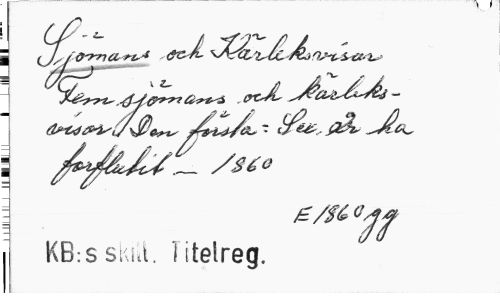 Sjömans och Kärleksvisor
Fem sjömans och kärleks-
visor. Den första: Sex år ha
förflutit — 1860
E 1860 gg
KB:s skill. Titelreg.